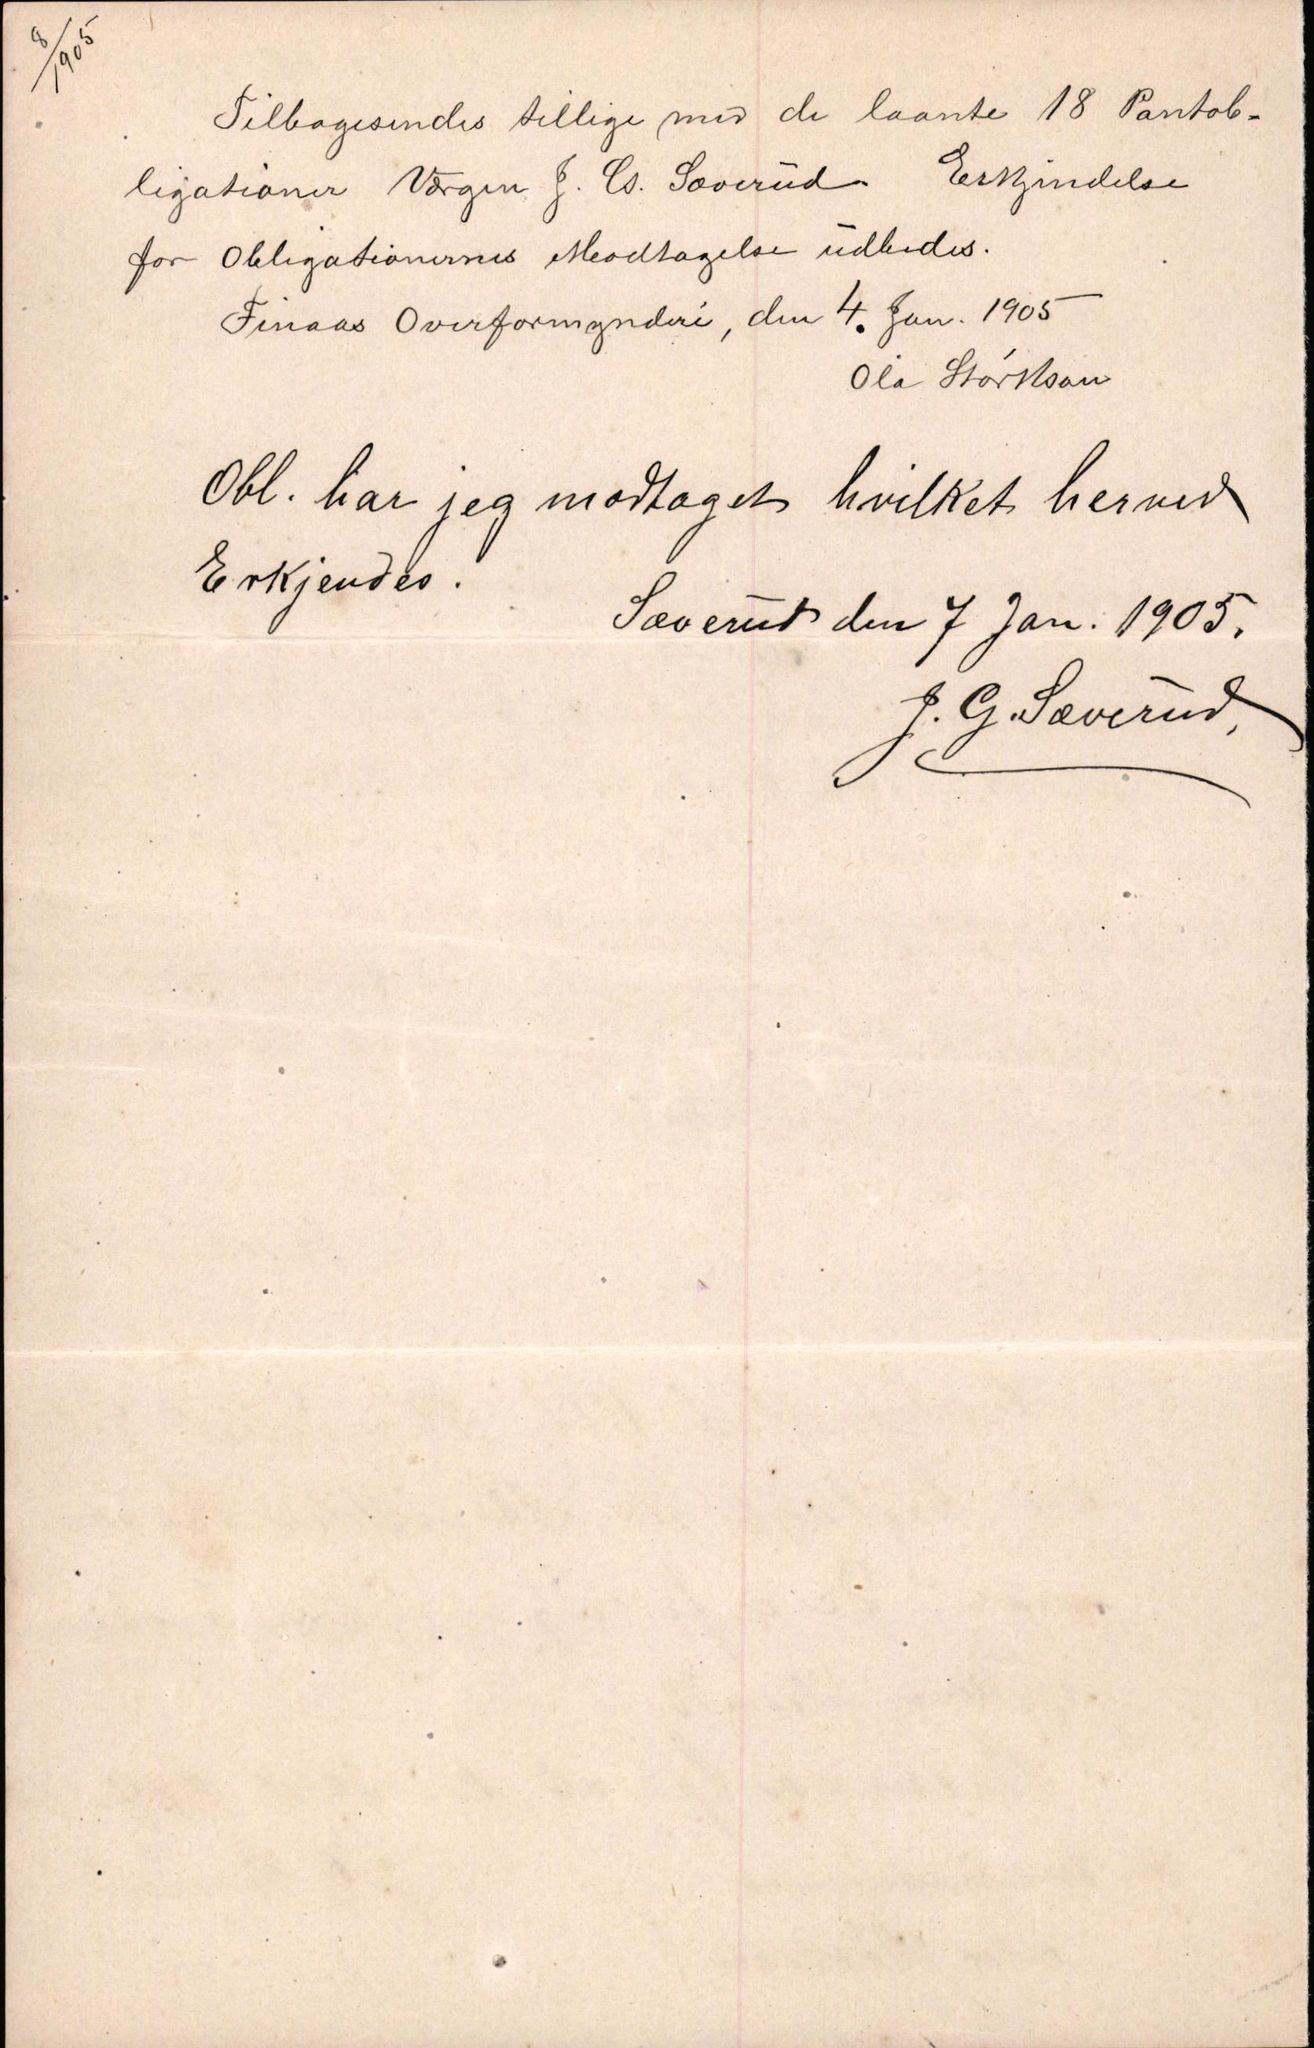 8/1905
Tilbagesendes tillige med de laante 18 Pantob-
ligationer Værgen J. G. Sæverud. Erkjendelse
for Obligationernes Modtagelse udbedes.
Finaas Overformynderi, den 4. Jan. 1905
Ola Størkson
Obl. har jeg modtaget hvilket herved
Erkjendes.
Sæverud den 7 Jan. 1905.
J. G. Sæverud,